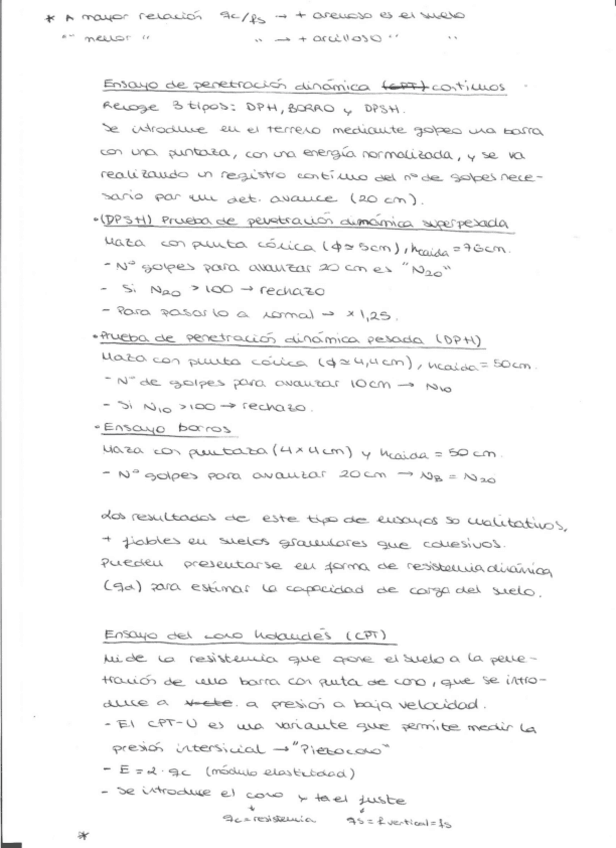 * A mayor relación qc/fs → + arenoso es el suelo
" menor " " → + arcilloso " "
Ensayo de penetración dinámica (CPT) continuos
Recoge 3 tipos: DPH, BORRO y DPSH.
Se introduce en el terreno mediante golpeo una barra
con una puntaza, con una energía normalizada, y se va
realizando un registro continuo del nº de golpes nece-
sario par un det. avance (20 cm).
· (DPSH) Prueba de penetración dinámica superpesada
Maza con punta cónica (ϕ≃5cm), hcaida = 76cm.
- Nº golpes para avanzar 20 cm es "N20"
- Si N20 > 100 → rechazo
- Para pasarlo a normal → × 1,25.
· Prueba de penetración dinámica pesada (DPH)
Maza con punta cónica (ϕ≃4,4cm), hcaida = 50cm.
- Nº de golpes para avanzar 10cm → N10
- Si N10 >100 → rechazo.
· Ensayo borros
Maza con puntaza (4×4cm) y hcaida = 50 cm.
- Nº golpes para avanzar 20cm → NB = N20
Los resultados de este tipo de ensayos so cualitativos,
+ fiables en suelos granulares que cohesivos.
Pueden presentarse en forma de resistencia dinámica
(qd) para estimar la capacidad de carga del suelo.
Ensayo del cono holandés (CPT)
Mide la resistencia que opone el suelo a la pene-
tración de una barra con punta de cono, que se intro-
duce a a presión a baja velocidad.
- El CPT-U es una variante que permite medir la
presión intersicial → "Piezocono"
- E = 2·qc (módulo elasticidad)
- Se introduce el cono y el fuste
qc = resistencia qs = R vertical = fs
*